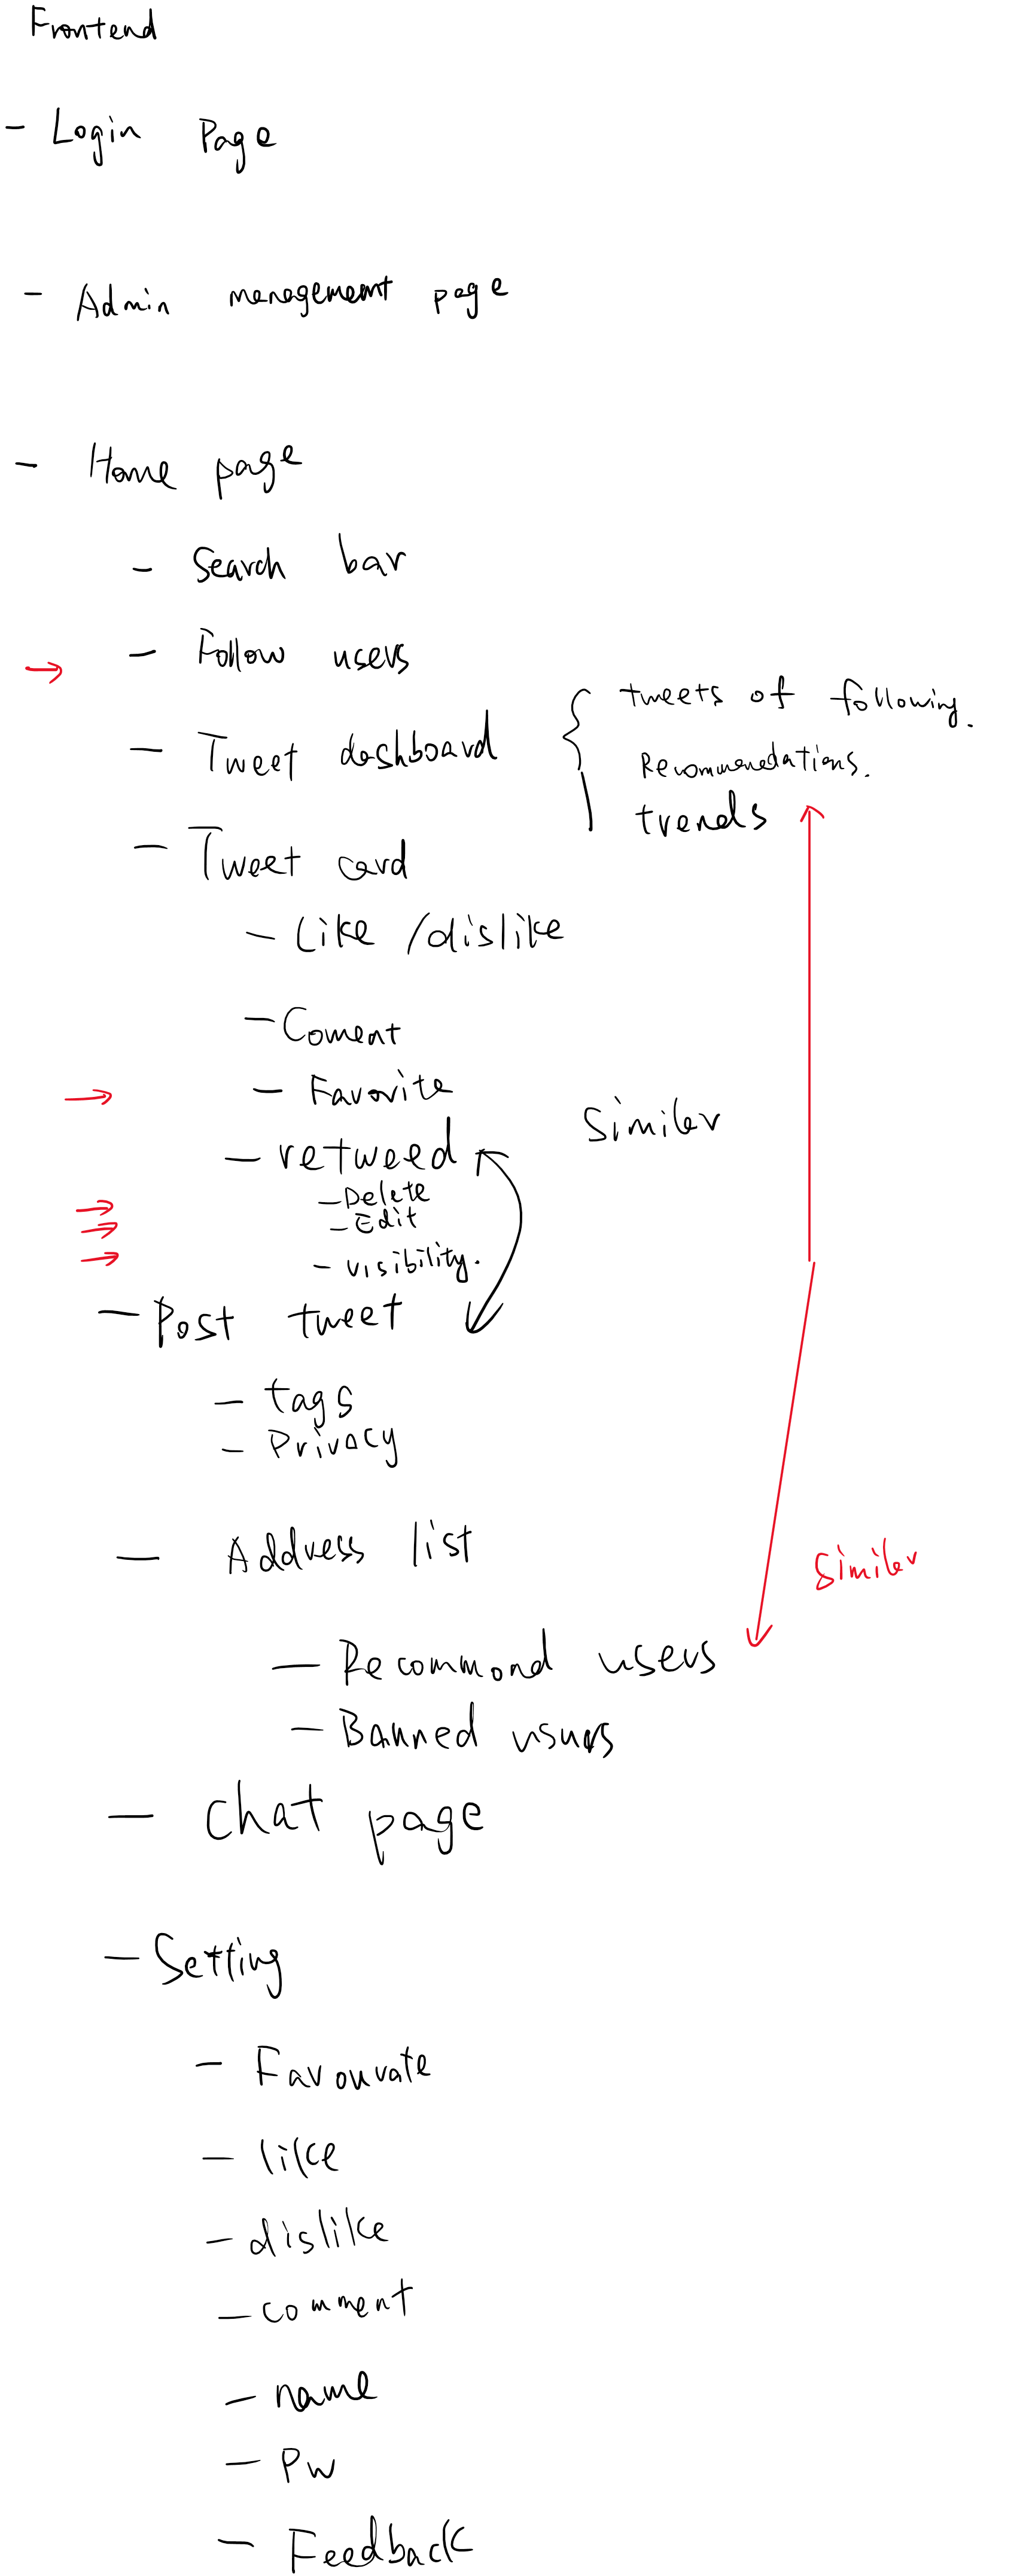 Frontend
- Login Page
- Admin management page
- Home page
- Search bar
- Follow users
- Tweet dashboard
tweets of following.
Recommendations.
trends
- Tweet card
- Like /dislike
- Coment
- Favorite
- retweed
Similar
- Delete
- Edit
- visibility.
- Post tweet
- tags
- Privacy
- Address list
Similar
- Recommond users
- Banned users
- chat page
- Setting
- Favourate
- like
- dislike
- comment
- name
- Pw
- Feedback